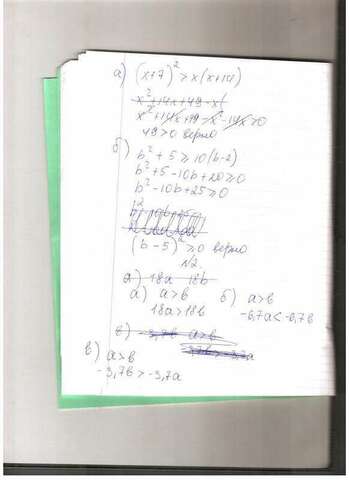 а) (x+7)² > x(x+14)
x²+14x+49-x(
x²+14x+49-x²-14x>0
49>0 верно
б) b²+5 ⩾ 10(b-2)
b²+5-10b+20⩾0
b²-10b+25⩾0
(b-5)²⩾0 верно
N2.
а) 18a 18b
а) a>b б) a>b
18a>18b -6,7a<-6,7b
в) -3,7b a>b
в) a>b
-3,7b>-3,7a